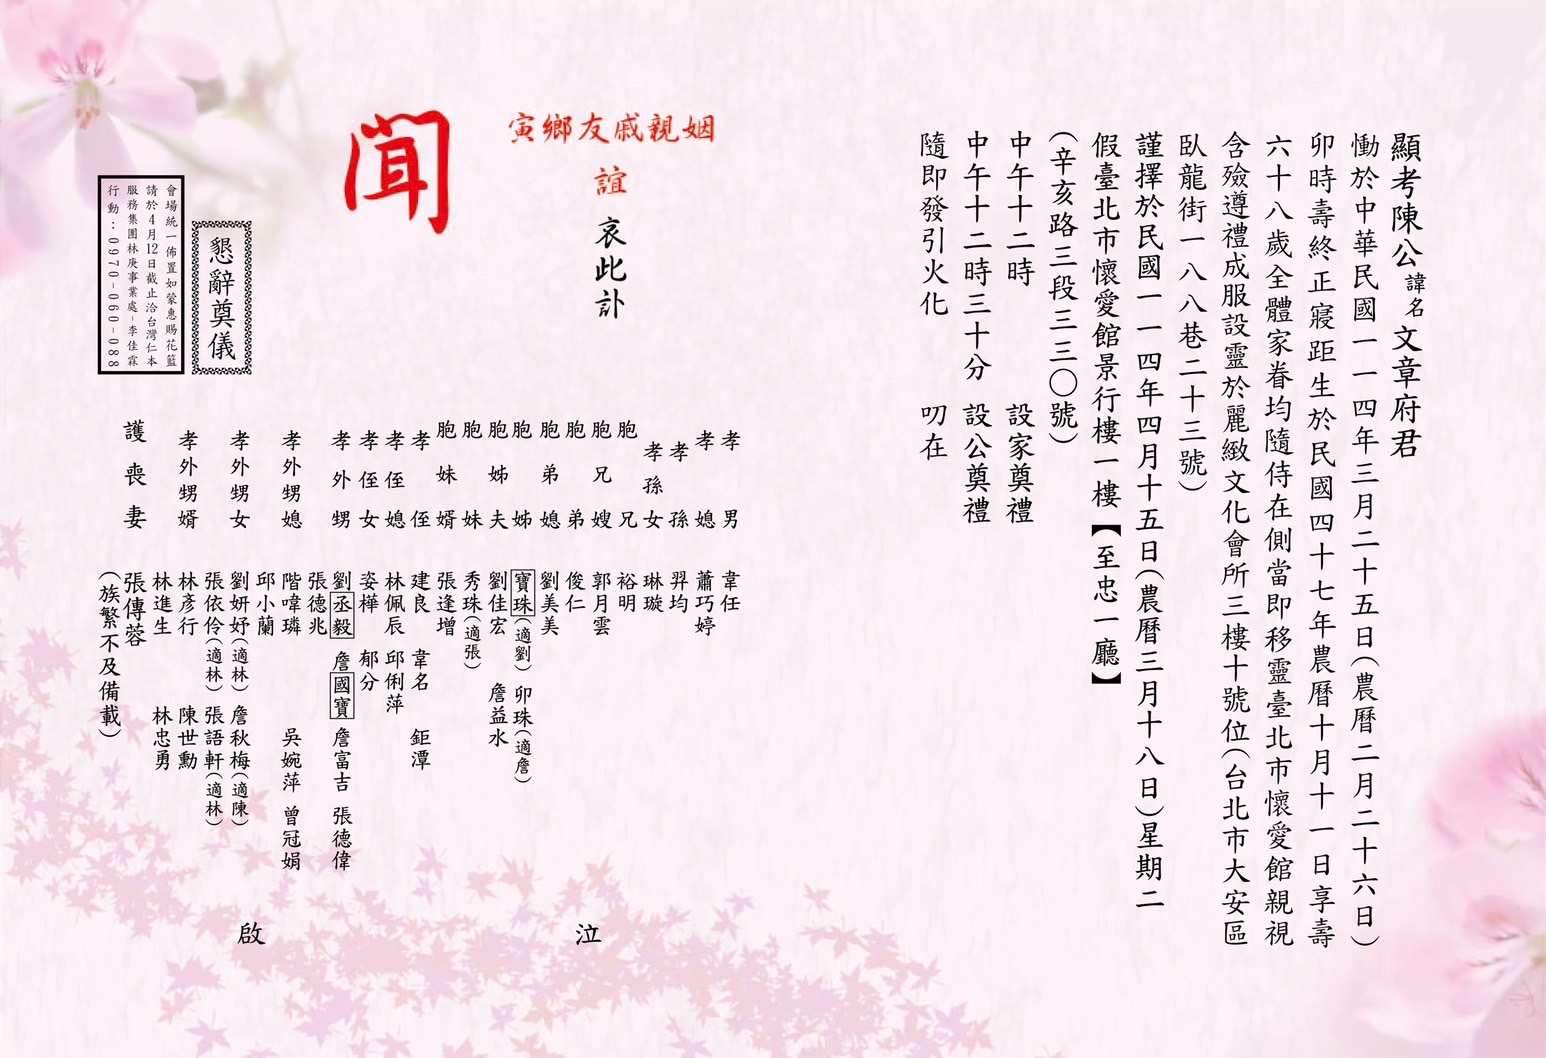 顯考陳公諱名文章府君
慟於中華民國一一四年三月二十五日(農曆二月二十六日)
卯時壽終正寢距生於民國四十七年農曆十月十一日享壽
六十八歲全體家眷均隨侍在側當即移靈臺北市懷愛館親視
含殮遵禮成服設靈於麗緻文化會所三樓十號位(台北市大安區
臥龍街一八八巷二十三號)
謹擇於民國一一四年四月十五日(農曆三月十八日)星期二
假臺北市懷愛館景行樓一樓【至忠一廳】
(辛亥路三段三三〇號)
中午十二時 設家奠禮
中午十二時三十分 設公奠禮
隨即發引火化 叨在
姻親戚友鄉寅
誼 哀此訃
聞
孝男 韋任
孝媳 蕭巧婷
孝孫 羿均
孝孫女 琳璇
胞兄 裕明
胞兄嫂 郭月雲
胞弟 俊仁
胞弟媳 劉美美
胞姊 寶珠(適劉) 卯珠(適詹)
胞姊夫 劉佳宏 詹益水
胞妹 秀珠(適張)
胞妹婿 張逢增
孝侄 建良 韋名 鉅潭
孝侄媳 林佩辰 邱俐萍
孝侄女 姿樺 郁分
孝外甥 劉丞毅 詹國寶 詹富吉 張德偉
張德兆
孝外甥媳 階喡璘 吳婉萍 曾冠娟
邱小蘭
孝外甥女 劉妍妤(適林) 詹秋梅(適陳)
張依伶(適林) 張語軒(適林)
孝外甥婿 林彥行 陳世勳
林進生 林忠勇
護喪妻 張傳蓉
(族繁不及備載)
泣
啟
懇辭奠儀
會場統一佈置如蒙惠賜花籃
請於4月12日截止洽台灣仁本
服務集團林庚事業處-李佳霖
行動:0970-060-088